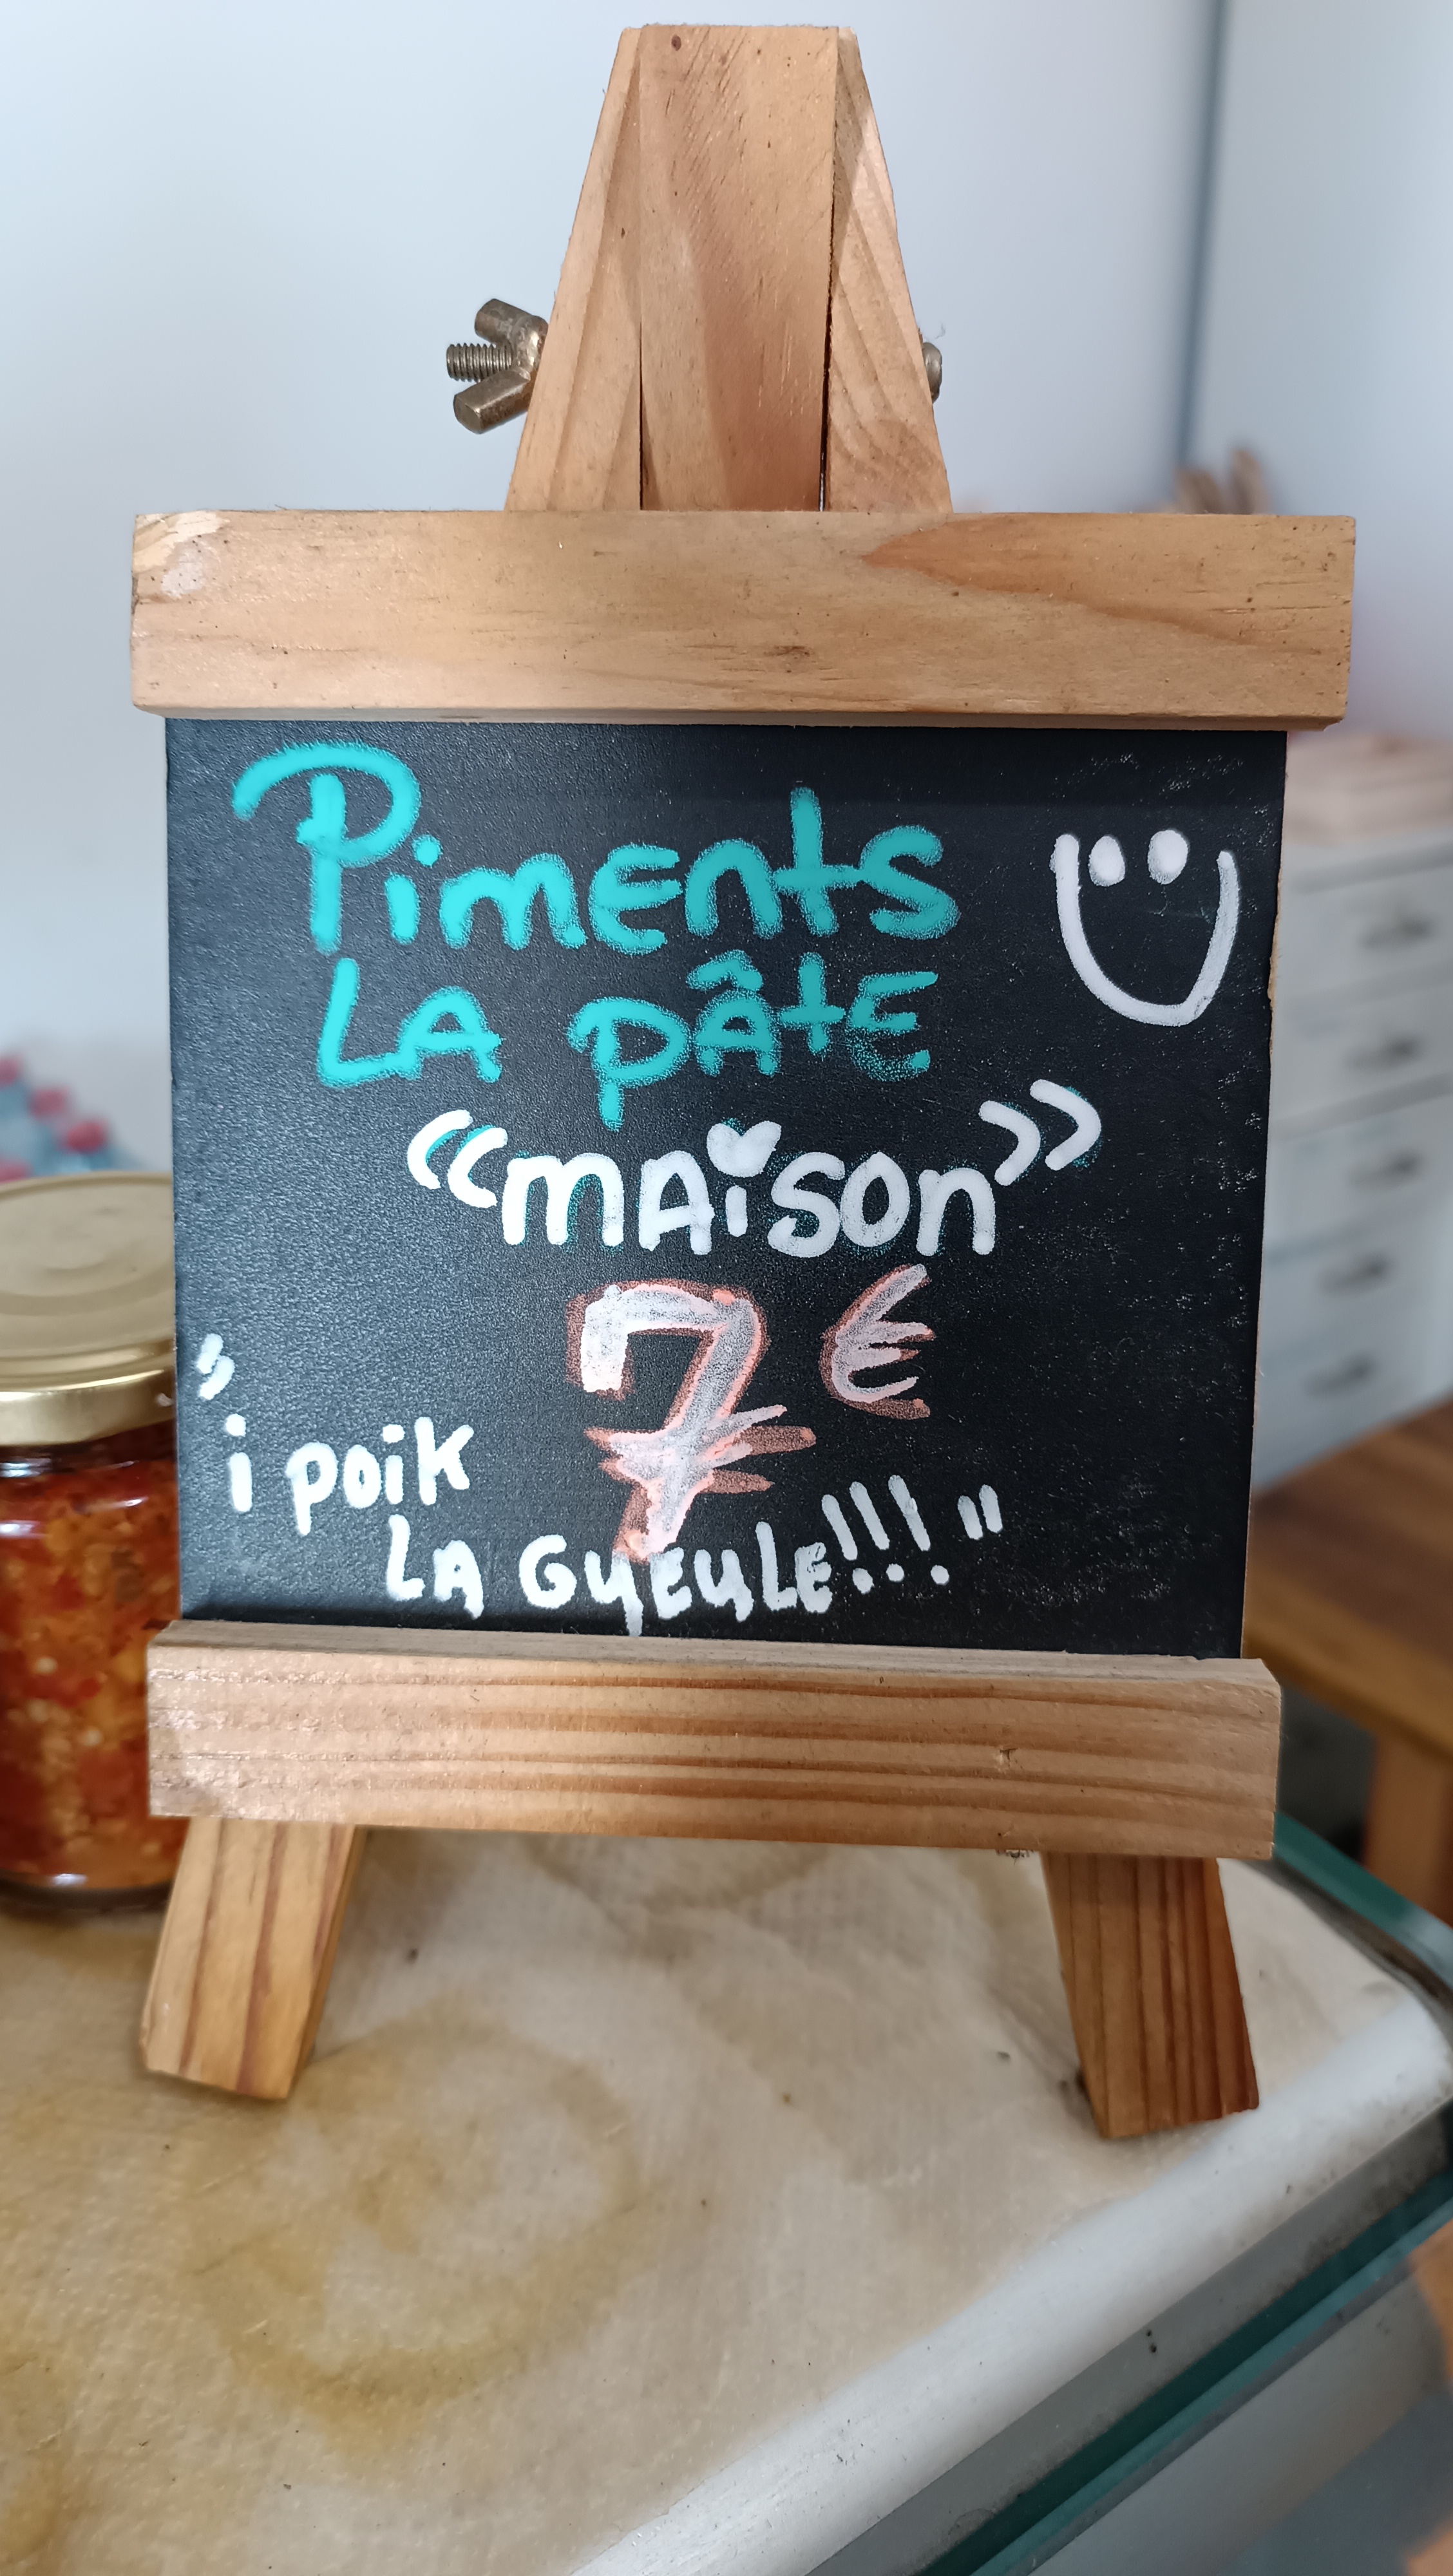 Piments
LA pâtE
«mAison»
7 €
"i poik
LA GuEuLE!!!"